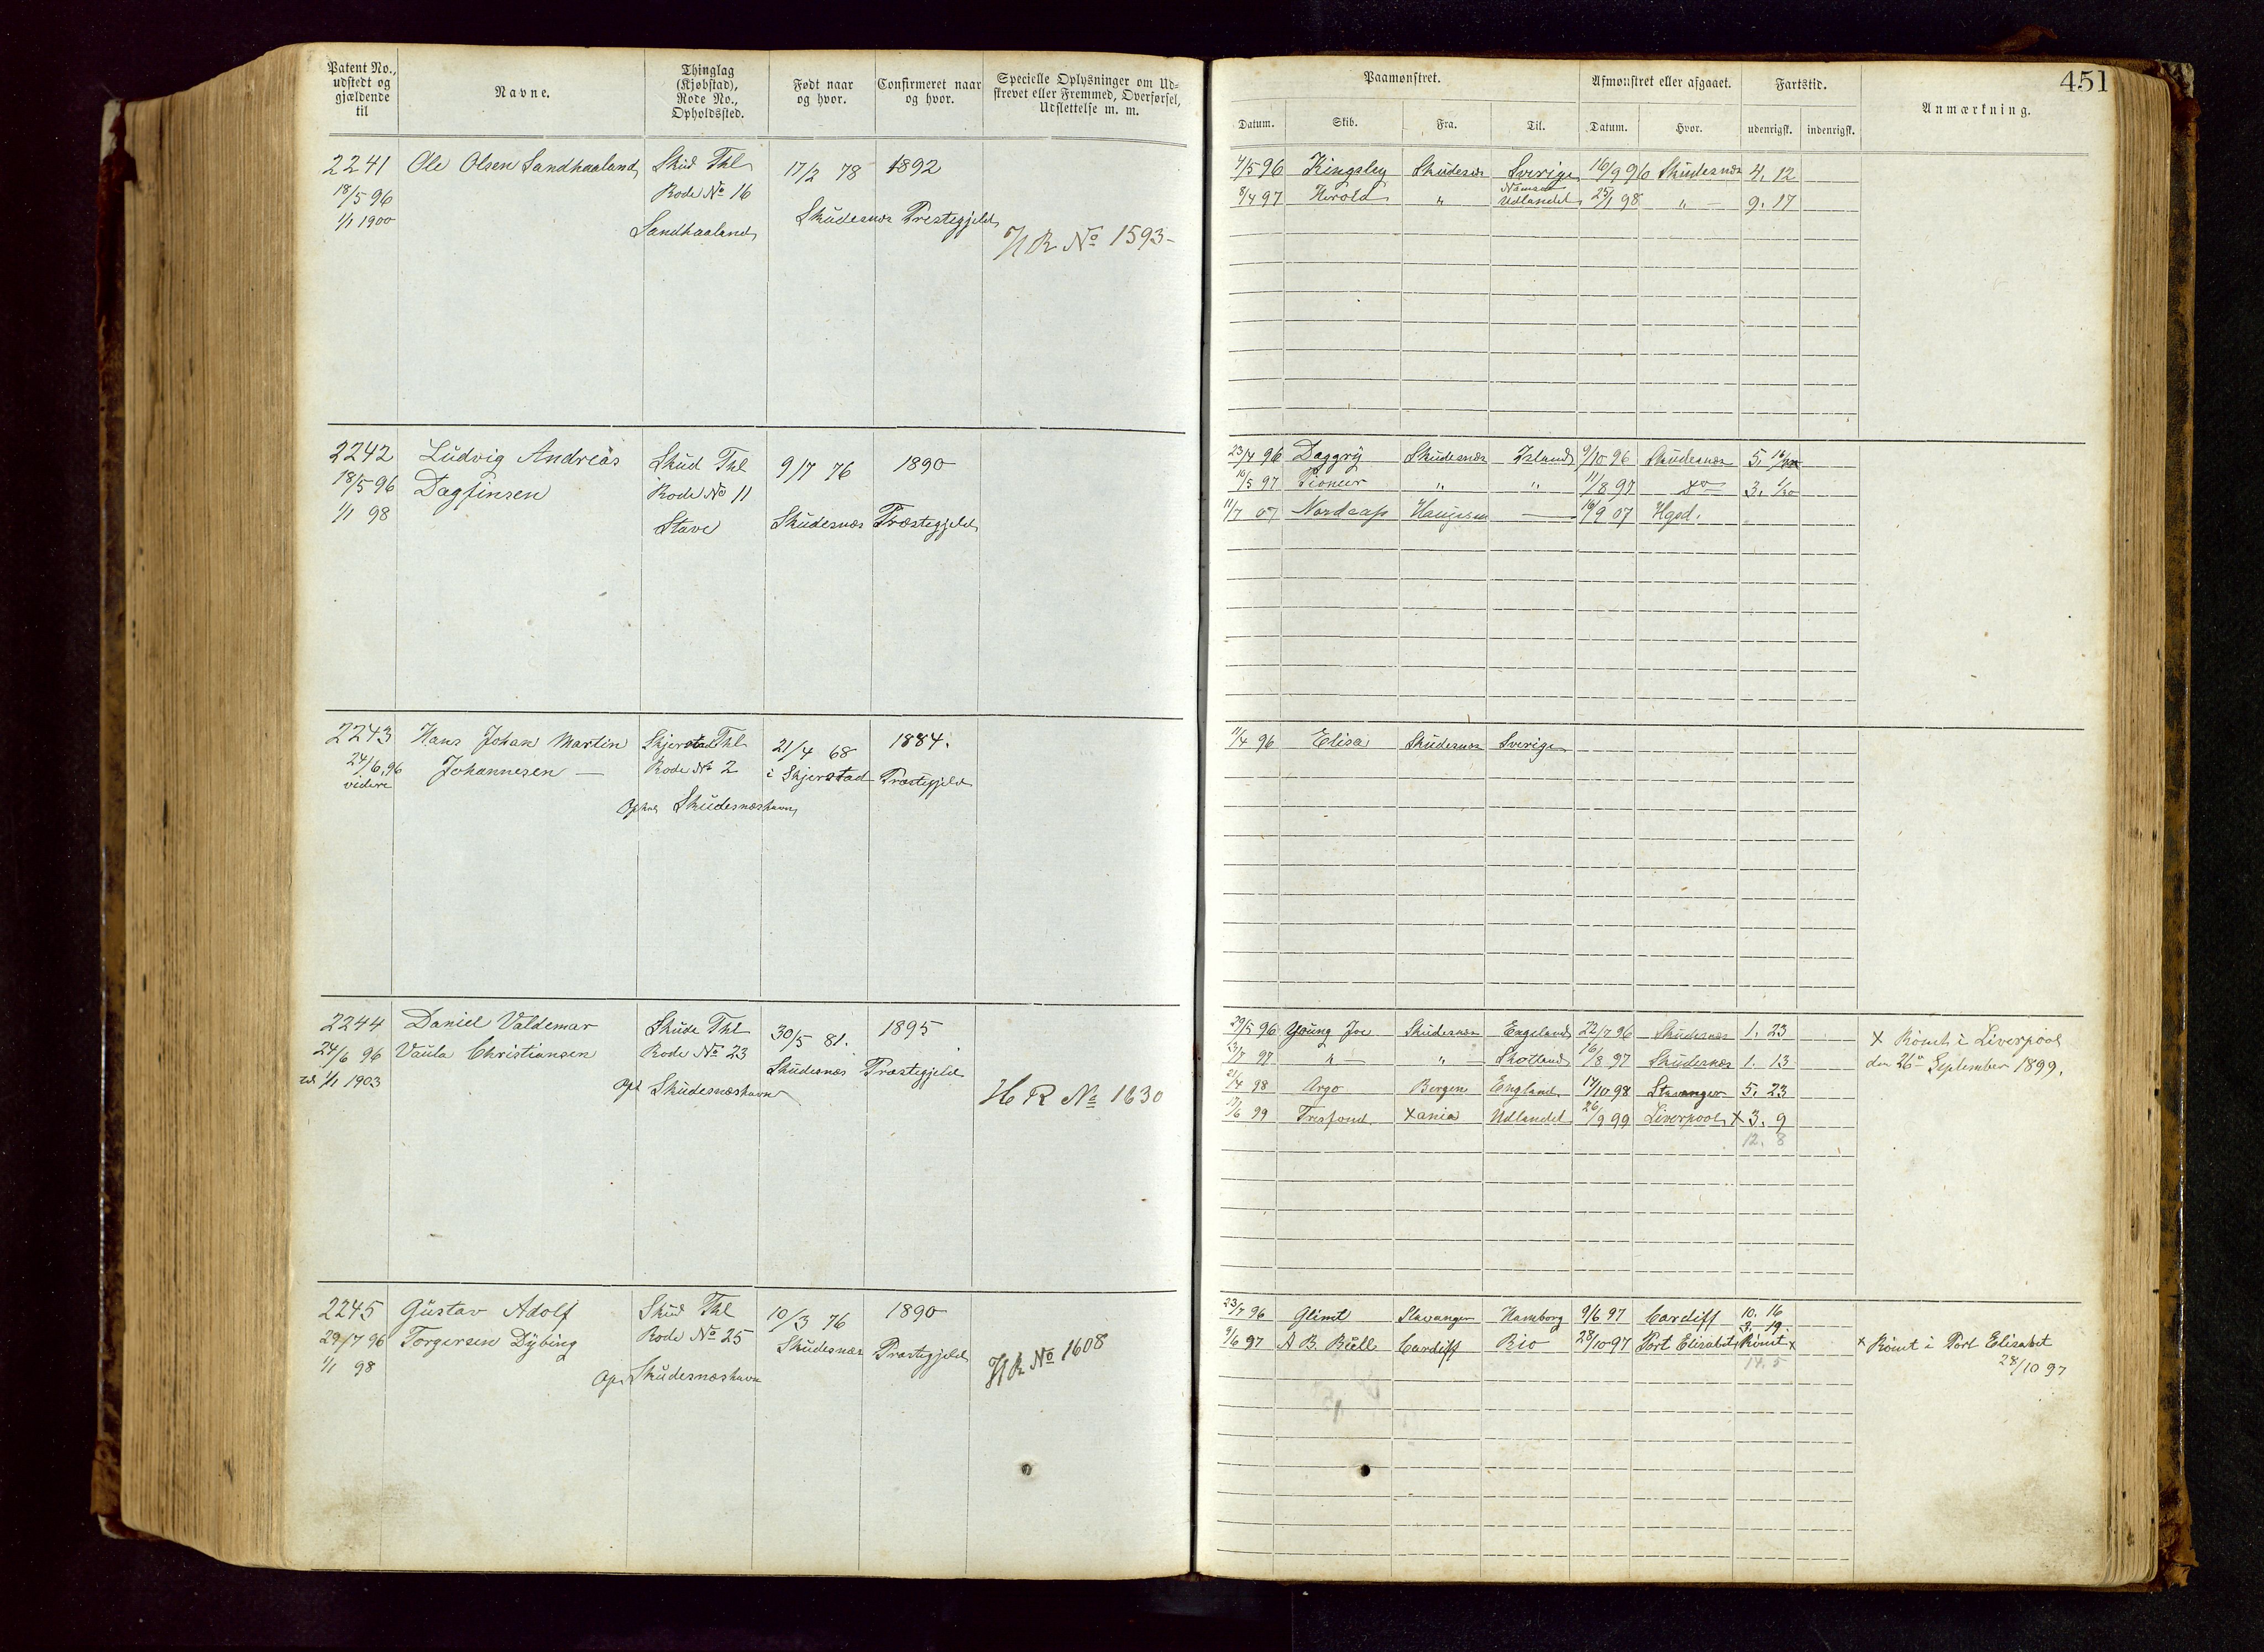 Patent No., udstedt og gjældende til
Navne.
Thinglag (Kjøbstad), Rode No., Opholdssted.
Født naar og hvor.
Confirmeret naar og hvor.
Specielle Oplysninger om Udskrevet eller Fremmed, Overførsel, Udslettelse m. m.
2241 Ole Olsen Sandhaaland Skud Thl 17/2 78 1892
18/5 96 Rode No 16
1/1 1900 Sandhaaland Skudesnæs Prestegjeld
H R No 1593
2242 Ludvig Andreas Skud Thl 9/7 76 1890
18/5 96 Dagfinsen Rode No 11
1/1 98 Stave Skudesnæs Præstegjeld
2243 Hans Johan Martin Skjerstad Thl 21/4 68 1884.
24/6 96 Johannesen — Rode No 2 i Skjerstad Præstegjeld
videre
Skudesnæshavn
2244 Daniel Valdemar Skude Thl 30/5 81. 1895
24/6 96 Vaula Christiansen Rode No 23 Skudesnæs Præstegjeld
til 1/1 1903 Opl Skudesnæshavn H R No 1630
2245 Gustav Adolf Skud Thl 10/3 76 1890
29/7 96 Torgersen Dybing Rode No 25 Skudesnæs Præstegjeld
1/1 98 Op. Skudesnæshavn H R No 1608
451
Paamønstret.
Afmønstret eller afgaaet.
Fartstid.
Anmærkning.
Datum. Skib. Fra. Til. Datum. Hvor. udenrigsk. indenrigsk.
4/5 96 Kingsley Skudesnæs Sverige 16/9 96 Skudesnæs 4. 12
8/4 97 Herold " Udlandet 25/1 98 " — 9. 17
23/4 96 Daggry Skudesnæs Island 9/10 96 Skudesnæs 5.
16/5 97 Pioneer " " 11/8 97 do 3.
11/7 07 Nordcap — 16/9 07 Hgsd.
11/4 96 Elisa Skudesnæs Sverige
29/5 96 Young Joe Skudesnæs England 22/7 96 Skudesnæs 1. 23
" — " — Skotland 16/8 97 Skudesnæs 1. 13
21/4 98 Argo Bergen England 14/10 98 Stavanger 5. 23
17/6 99 Tresfond Xania Udlandet 26/9 99 Liverpool X 3. 9
12. 8
X Römt i Liverpool
den 26de September 1899.
23/7 96 Glimt Stavanger Hamborg 9/6 97 Cardiff 10. 16
3. 19.
9/6 97 A B. Bull Cardiff Rio 28/10 97 Port Elisabet Römt X
14. 5
X Römt i Port Elisabet
28/10 97